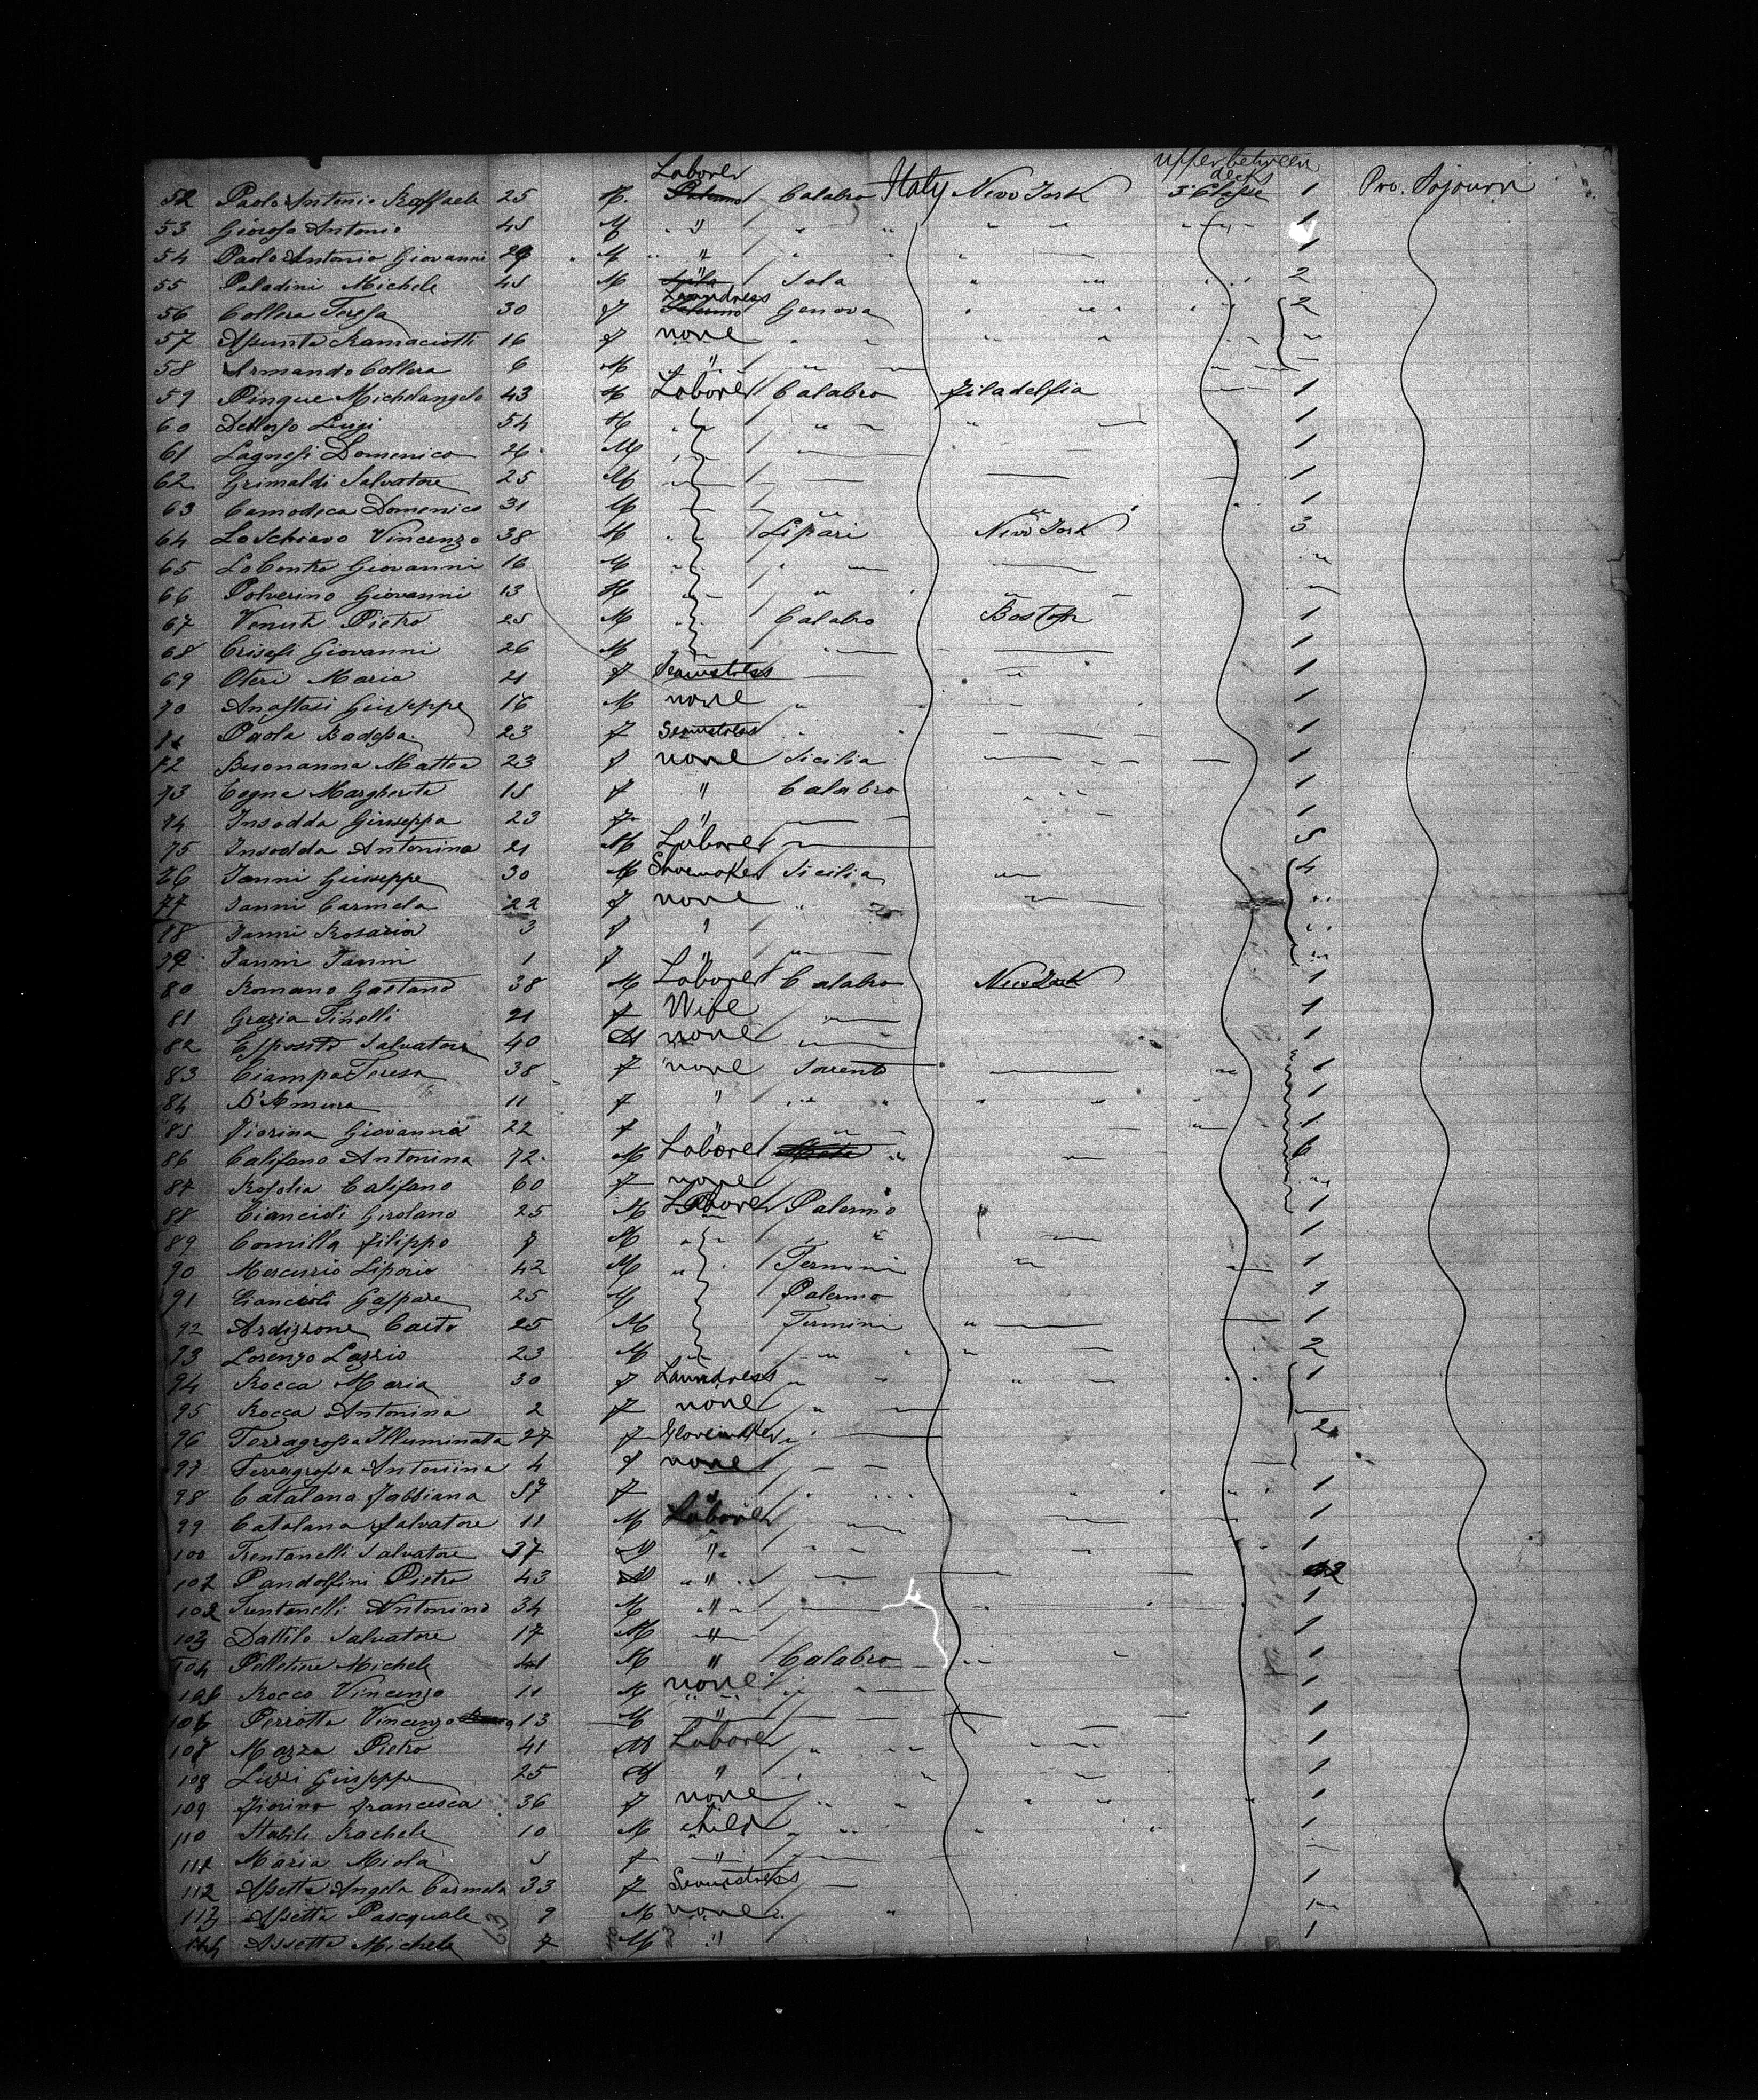 Laborer upper between decks
52 Paolo Antonio Raffaele 25 M. Palermo Calabro Italy New York 3ª Classe 1 Pro. Sojourn
53 Gioiosa Antonio 45 M " 1
54 Paolo Antonio Giovanni 29 M " 1
55 Paladini Michele 45 M " Sala 2
56 Collera Teresa 30 f Laundress Genova 2
57 Assunta Ramaciotti 16 f none "
58 Armando Collera 6 M "
59 Pinque Michelangelo 43 M Laborer Calabro Filadelfia 1
60 Luigi 54 M " 1
61 Lagnesi Domenico 26 M 1
62 Grimaldi Salvatore 25 M 1
63 Camodeca Domenico 31 M 1
64 LoSchiavo Vincenzo 38 M Lipari New York 3
65 LoContro Giovanni 16 M "
66 Polverino Giovanni 13 M
67 Venuti Pietro 25 M Calabro Boston 1
68 Crisafi Giovanni 26 M 1
69 Oteri Maria 21 f Seamstress 1
70 Anastasi Giuseppe 16 M none 1
71 Paola Badessa 23 f Seamstress 1
72 Buonanna Mattea 23 f none Sicilia 1
73 Cogna Margherita 18 f " Calabro 1
74 Insodda Giuseppa 23 f " 1
75 Insodda Antonina 21 M Laborer 5
76 Ianni Giuseppe 30 M Shoemaker Sicilia 4
77 Ianni Carmela 22 f none "
78 Ianni Rosaria 3 f " "
79 Ianni 1 f " "
80 Romano Gaetano 38 M Laborer Calabro New York 1
81 Grazia Tinelli 21 f Wife 1
82 Esposito Salvatore 40 M none 1
83 Ciampa Teresa 38 f none Sorrento 1
84 D'Amura 11 f " 1
85 Fiorina Giovanna 22 f " 1
86 Califano Antonina 72 M Laborer " 6
87 Rosolia Califano 60 f none "
88 Ciancioli Girolano 25 M Laborer Palermo 1
89 Comilla Filippo M " 1
90 Mercurio Liporio 42 M " Termini 1
91 Ciancioli Gaspare 25 M Palermo 1
92 Ardizzone Casto 25 M Termini 1
93 Lorenzo Lazzio 23 M " 2
94 Rocca Maria 30 f Laundress 1
95 Rocca Antonina 2 f none "
96 Terragrossa Illuminata 27 f Glovemaker 2
97 Terragrossa Antonina 4 f none
98 Catalana Fabbiana 57 f " 1
99 Catalana Salvatore 11 M Laborer 1
100 Trentanelli Salvatore 37 M " 1
101 Pandolfini Pietro 43 M " 2
102 Trentanelli Antonino 34 M " 1
103 Dattilo Salvatore 17 M " 1
104 Pelletiere Michele 41 M " Calabro 1
105 Rocco Vincenzo 11 M none 1
106 Perrotta Vincenzo 13 M " 1
107 Mazza Pietro 41 M Laborer 1
108 Luzzi Giuseppe 25 M " 1
109 Fiorino Francesca 36 f none 1
110 Stabile Rachele 10 M child 1
111 Maria Miola 5 f "
112 Assetta Angela Carmela 33 f Seamstress 1
113 Assetta Pasquale 9 M none 1
114 Assetta Michele 7 M " 1